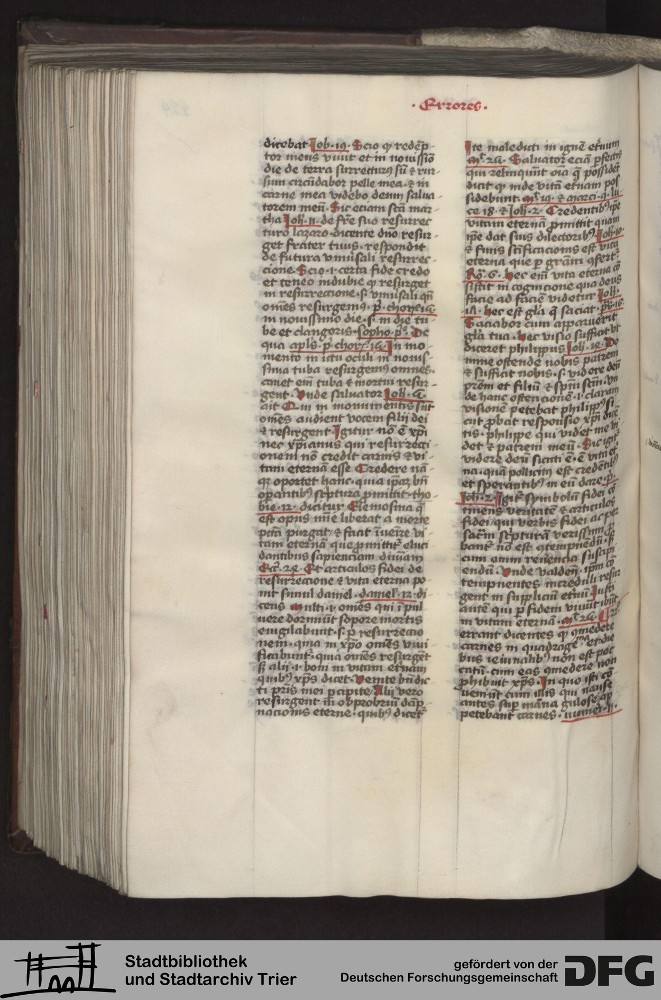 · Errores ·
dicebat Job · 19 · Scio q redēp
tor meus viuit et in nouissīo
die de terra surrecturus sū & rur
sum circūdabor pelle mea · & in
carne mea videbo deum salua
torem meū · Sic eciam scā mar
tha Joh · 11 · de fr̄e suo resurrec
turo lazaro · dicente dn̄o resur
get frater tuus · respondit
de futura vniūsali resurrec
cione · Scio · i · certa fide credo
et teneo indubie q resurget
in resurreccione · s · vniūsali qn̄
om̄es resurgemus · p̄ · chor · 14
in nouissimo die · s · in die tu
be et clangoris · sopho · p̄ · De
qua apl̄s · p̄ · chor · 14 · In mo
mento in ictu oculi in nouis
sima tuba resurgemus om̄es
canet eim̄ tuba & mortui resur
gent · Vnde saluator Joh · 5
ait Qui in monumentis sūt
om̄es audient vocem filij dei
& resurgent · Igitur nō ē xp̄i
nec xp̄ianus qui resurrecti
onem nō credit carnis & vi
tam eternā esse · Credere nā
qz oportet hanc · quia ip̄az bn̄
opantibus scptura pmittit · tho
bie · 12 · dicitur Elemosina q̄
est opus mīe liberat a morte
pctā purgat · & facit inuēire vi
tam eternā que pmittitur eluci
dantibus sapienciam diuinam
Ecc · 24 · Et articulos fidei de
resurreccione & vita eterna po
nit simul daniel · daniel · 12 · di
cens Multi · i · om̄es qui i pul
uere dormiūt sopore mortis
euigilabunt · s · p resurrecio
nem · quia in xp̄o om̄es viui
ficabunt · quia om̄es resurgēt
s alij · i · boni in vitam etnam
quibus xp̄s dicet · Venite bn̄dic
ti pris mei pcipite · Alij vero
resurgent in obprobriū dāp
nacionis eterne · quibus dicet
Ite maledicti in ignē etnum
Mt · 25 · Saluator eciā pfectis
qui relinquūt oīa q possidēt
dicit q inde vitā etnam pos
sidebunt · Mt · 19 · & marci · 9 · lu
ce 18 · & Joh · 2 · Credentibus ip̄e
vitam eternā pmittit quam
ip̄e dat suis dilectoribus Joh · 10
& finis scificacionis est vita
eterna que p grām
Ro · 6 · hec eim̄ vita eterna cō
sistit in cognicione qua deus
facie ad faciē videtur Joh ·
hec est glā q saciat · ps · 16
Saciabor cum apparuerit
glā tua · hec visio sufficit vt
diceret philippus Joh · 14 · Do
mine ostende nobis patrem
& sufficit nobis · s · vidēre deū
prēm et filiū & spm̄ scm̄ · vn̄
de hanc ostencionē · i · claram
visionē petebat philippus si
cut pbat responsio xp̄i dicē
tis · philippe qui videt me vi
det & patrem meū · Sic igitur
videre deū sicuti ē · ē vita et
na · quā pollicitus est credētibus
et sperantibus in eū dare · p̄ ·
Joh · 2 · Igitur symbolū fidei cō
tinens veritatē & articulos
fidei · qui verbis fidei ac per
sacrā scpturā verissime p
bantur nō est contempnendū · s
cum omi reuencia suscipi
endū · Vnde valden̄ · ip̄m cō
tempnentes increduli resur
gent in suppliciū etnū Justi
autē qui p fidem viuūt ibūt
in vitam eternā · Mt · 25 ·
errant dicentes q comedere
carnes in quadragesia et die
bus ieiunalibus nō est pec
catū · cum eas comedere non
phibuit xp̄s · In quo isti cō
ueniūt cum illis qui nause
antes sup manna gulose
petebant carnes · numeri · 11 ·
Stadtbibliothek
und Stadtarchiv Trier
gefördert von der
Deutschen Forschungsgemeinschaft
DFG